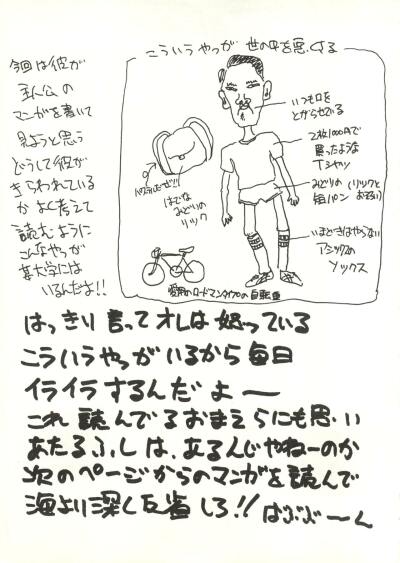 今回は彼が
主人公の
マンガを書いて
見ようと思う
どうして彼が
きらわれている
かよく考えて
読むように
こんなやつが
某大学には
いるんだよ!!
こういうやつが世の中を悪くする
いつも口を
とがらせてる
2枚1000円で
買ったような
Tシャツ
みどりの(リックと
短パン おそろい)
いまどきはやらない
アシックスの
ソックス
はでな
みどりいろの
リック
愛用のロードマンタイプの自転車
はっきり言ってオレは怒っている
こういうやつがいるから毎日
イライラするんだよー
これ読んでるおまえらにも思い
あたるふしは、あるんじゃねーのか
次のページからのマンガを読んで
海より深く反省しろ!! ばぶぶーん